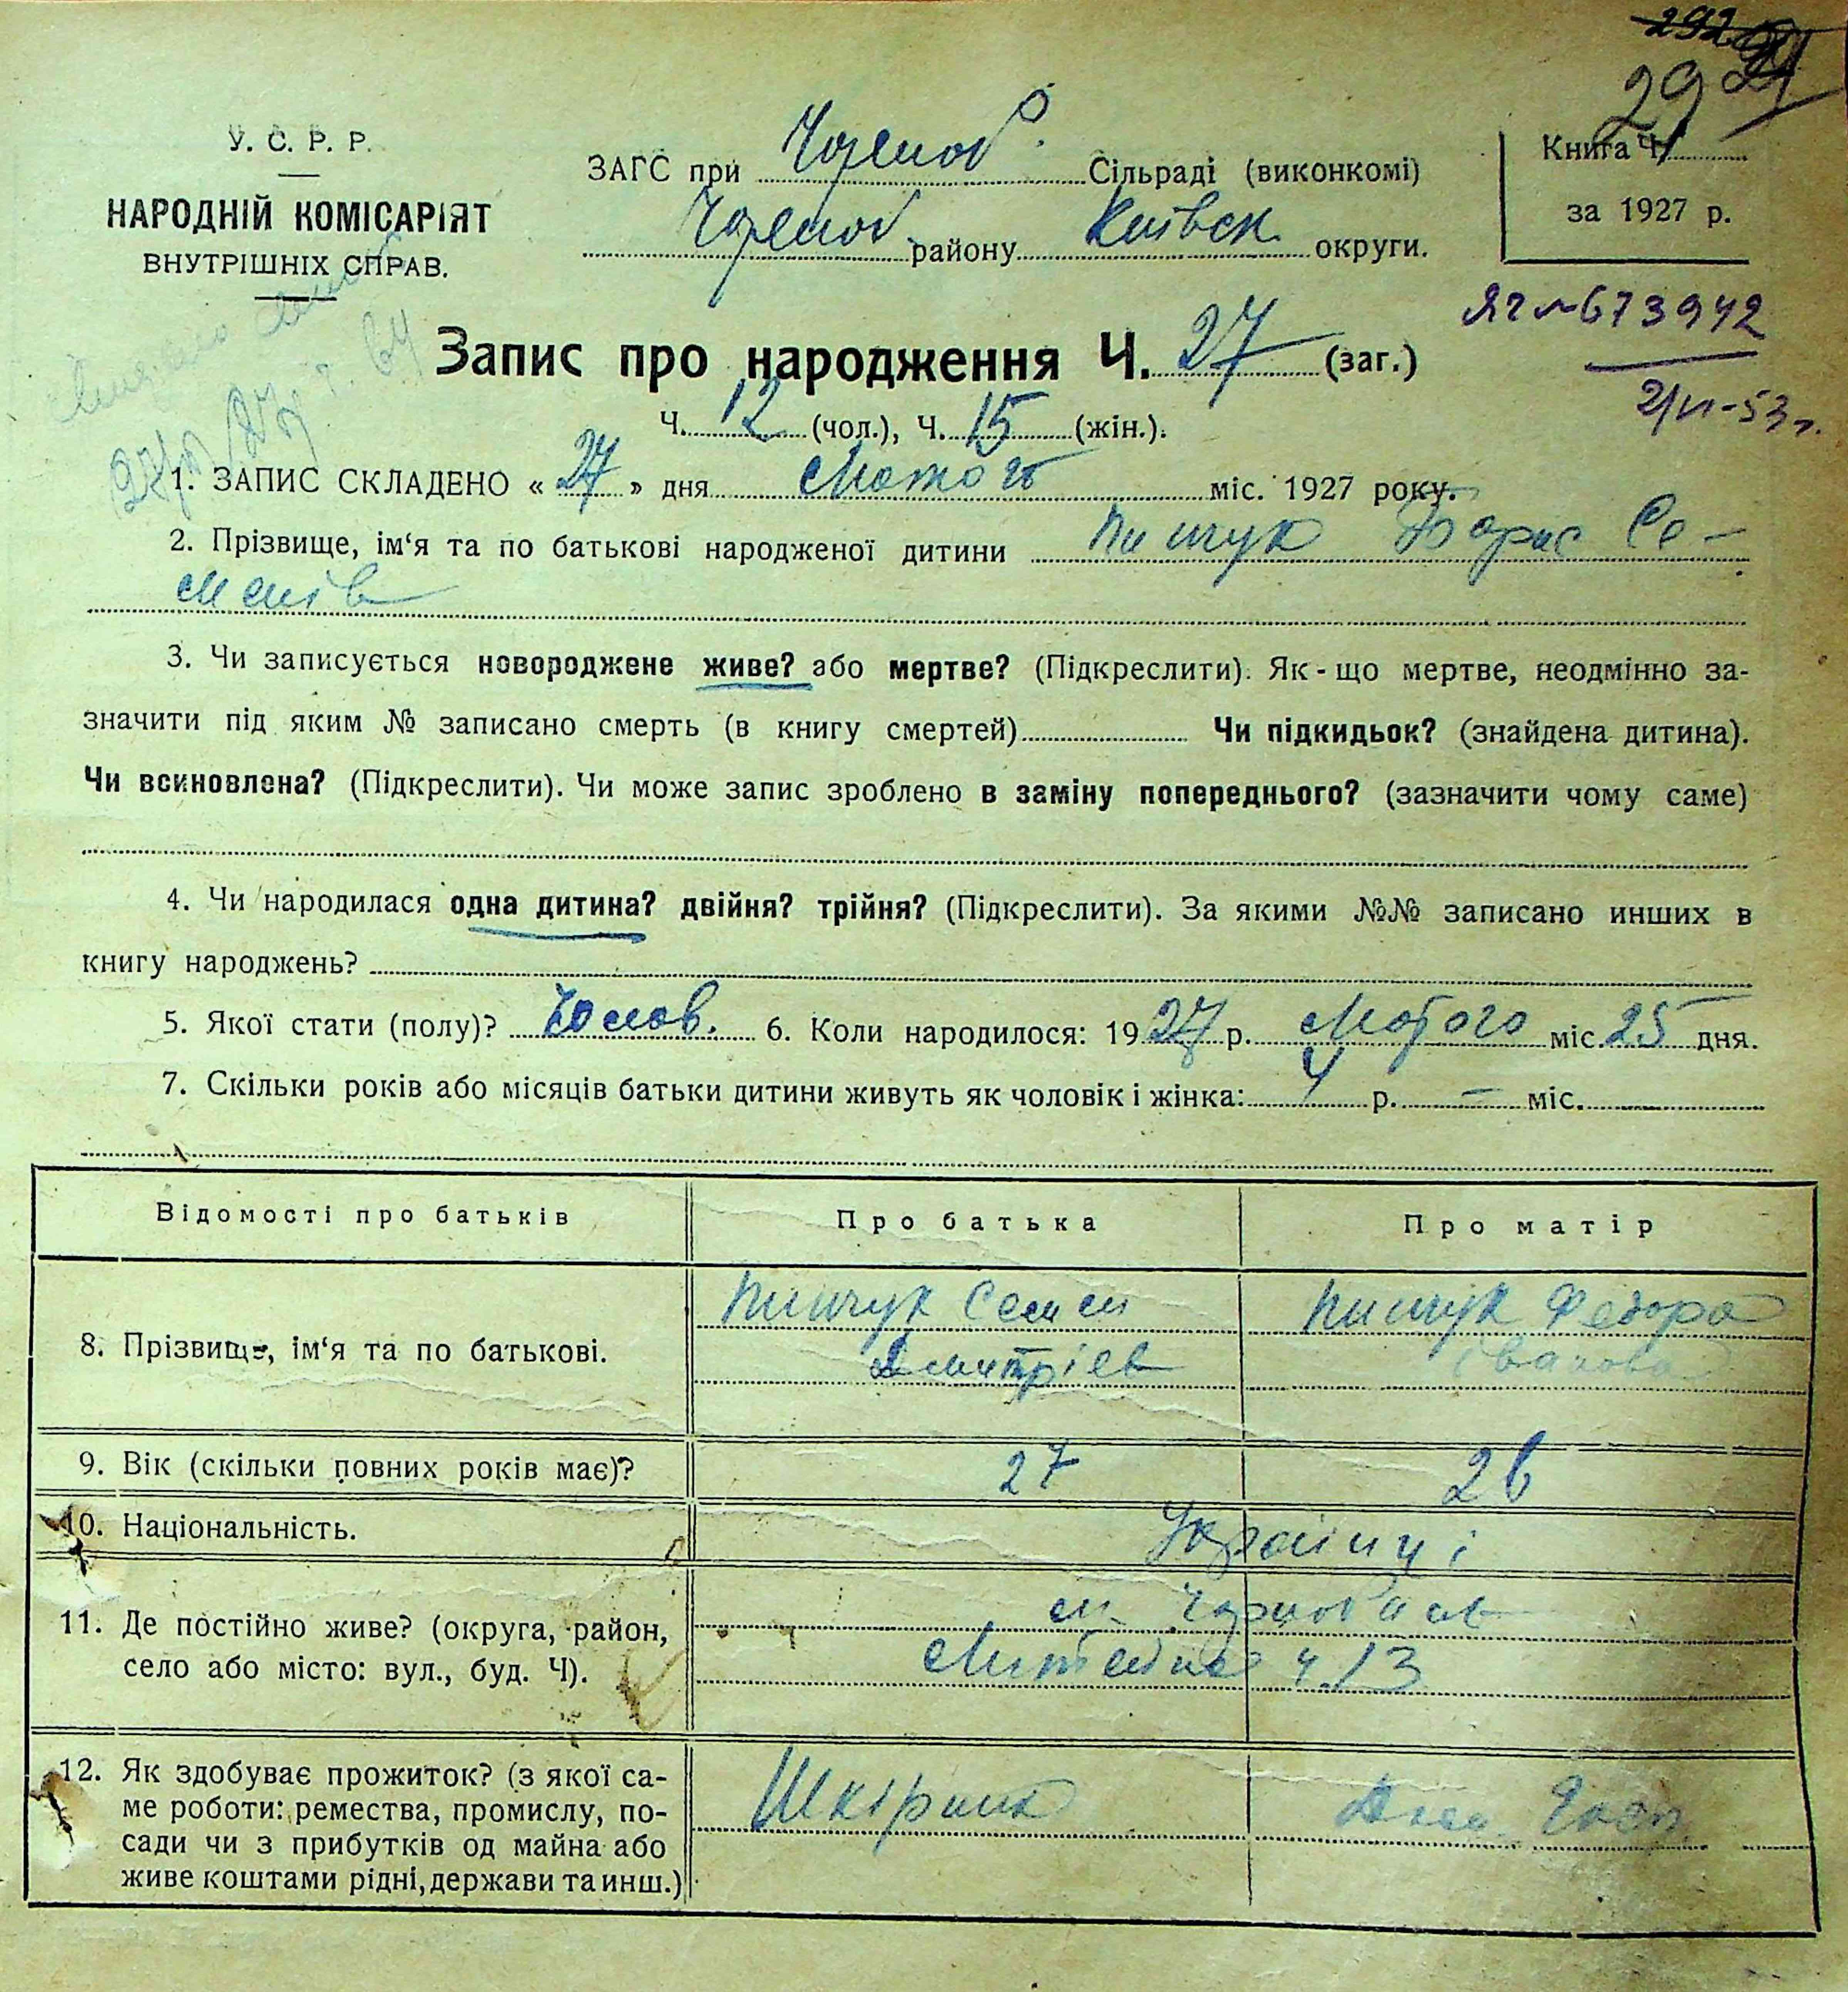 292
29
У. С. Р. Р.
НАРОДНІЙ КОМІСАРІЯТ
ВНУТРІШНІХ СПРАВ.
ЗАГС при Чорноб. Сільраді (виконкомі)
Чорноб. району Київськ округи.
Книга Ч.
за 1927 р.
ЯГ № 673942
2/VI-53 г.
Запис про народження Ч. 27 (заг.)
Ч. 12 (чол.), Ч. 15 (жін.).
1. ЗАПИС СКЛАДЕНО « 27 » дня Лютого міс. 1927 року.
2. Прізвище, ім‘я та по батькові народженої дитини Пищук Борис Се-
менів
3. Чи записується новороджене живе? або мертве? (Підкреслити). Як-що мертве, неодмінно за-
значити під яким № записано смерть (в книгу смертей) Чи підкидьок? (знайдена дитина).
Чи всиновлена? (Підкреслити). Чи може запис зроблено в заміну попереднього? (зазначити чому саме)
4. Чи народилася одна дитина? двійня? трійня? (Підкреслити). За якими №№ записано инших в
книгу народжень?
5. Якої стати (полу)? Чолов. 6. Коли народилося: 1927 р. Лютого міс. 25 дня.
7. Скільки років або місяців батьки дитини живуть як чоловік і жінка: 4 р. — міс.
Відомості про батьків Про батька Про матір
8. Прізвище, ім‘я та по батькові. Пищук Семен Пищук Федора
Дмитріев Іванова
9. Вік (скільки повних років має)? 27 26
10. Національність. Українці
11. Де постійно живе? (округа, район, м. Чорнобиль
село або місто: вул., буд. Ч). ч. 13
12. Як здобуває прожиток? (з якої са-
ме роботи: ремества, промислу, по- Шкірник Дом. Госп.
сади чи з прибутків од майна або
живе коштами рідні, держави та инш.)